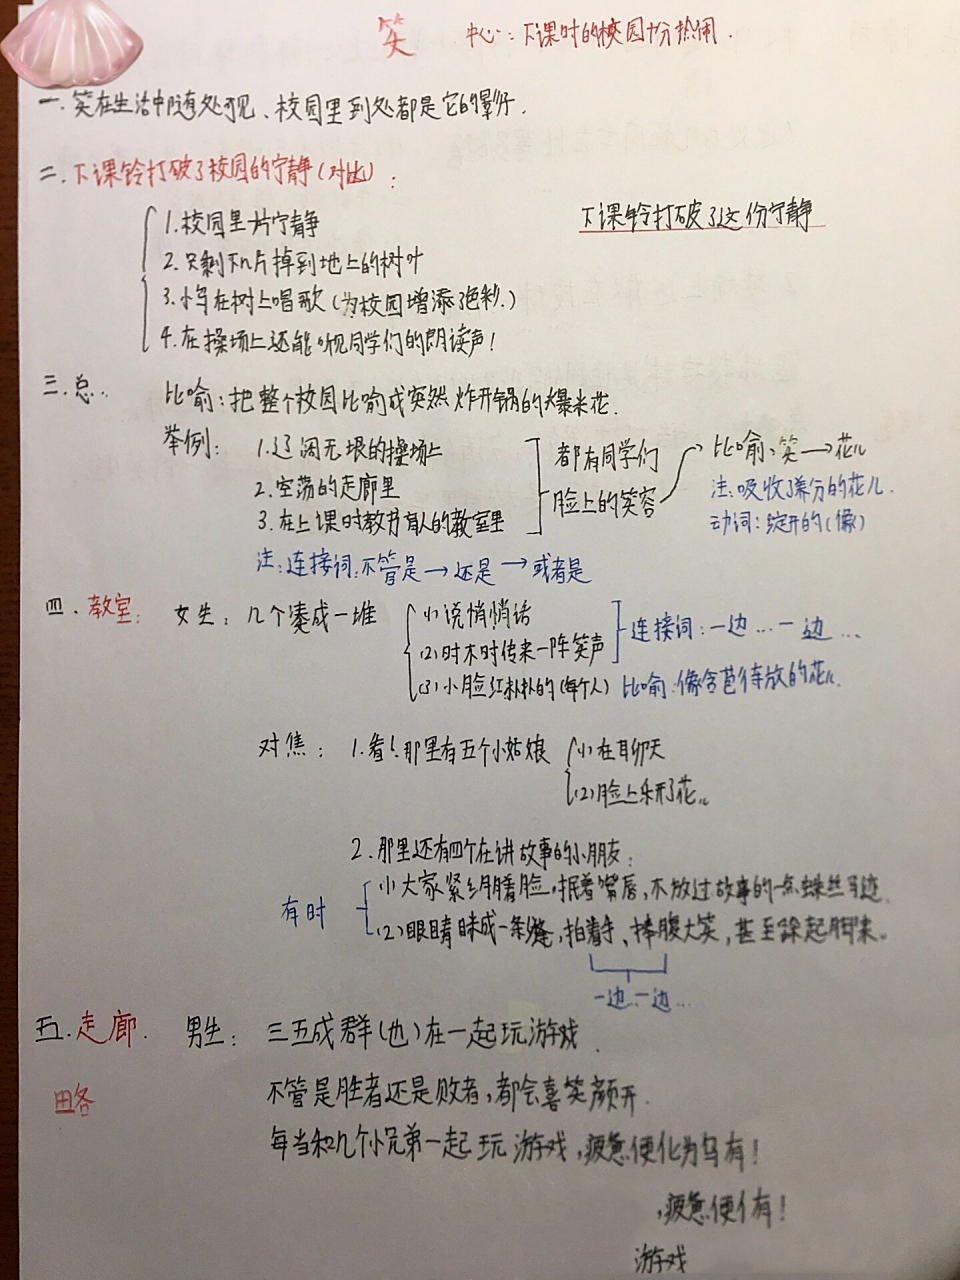 笑 中心:下课时的校园十分热闹.
一.笑在生活中随处可见、校园里到处都是它的影子.
二.下课铃打破了校园的宁静(对比):
1.校园里一片宁静 下课铃打破了这份宁静
2.只剩下几片掉到地上的树叶
3.小鸟在树上唱歌(为校园增添了色彩.)
4.在操场上还能听见同学们的朗读声!
三.总. 比喻:把整个校园比喻成突然炸开锅的爆米花.
举例: 1.辽阔无垠的操场上 都有同学们 比喻:笑→花儿
2.空荡的走廊里 脸上的笑容 注:吸收了养分的花儿.
3.在上课时教书育人的教室里 动词:绽开的(像)
注:连接词:不管是→还是→或者是
四.教室: 女生:几个凑成一堆 (1)说悄悄话 连接词:一边…一边…
(2)时不时传来一阵笑声
(3)小脸红扑扑的(每个人) 比喻:像含苞待放的花儿.
对焦: 1.看!那里有五个小姑娘 (1)在聊天
(2)脸上乐开了花儿
2.那里还有四个在讲故事的小朋友:
有时 (1)大家紧绷着脸,抿着嘴唇,不放过故事的一点蛛丝马迹.
(2)眼睛眯成一条缝,拍着手、捧腹大笑,甚至跺起脚来。
一边…一边…
五.走廊. 男生: 三五成群(也)在一起玩游戏.
略 不管是胜者还是败者,都会喜笑颜开.
每当和几个小兄弟一起玩游戏,疲惫便化为乌有!
,疲惫便有!
游戏